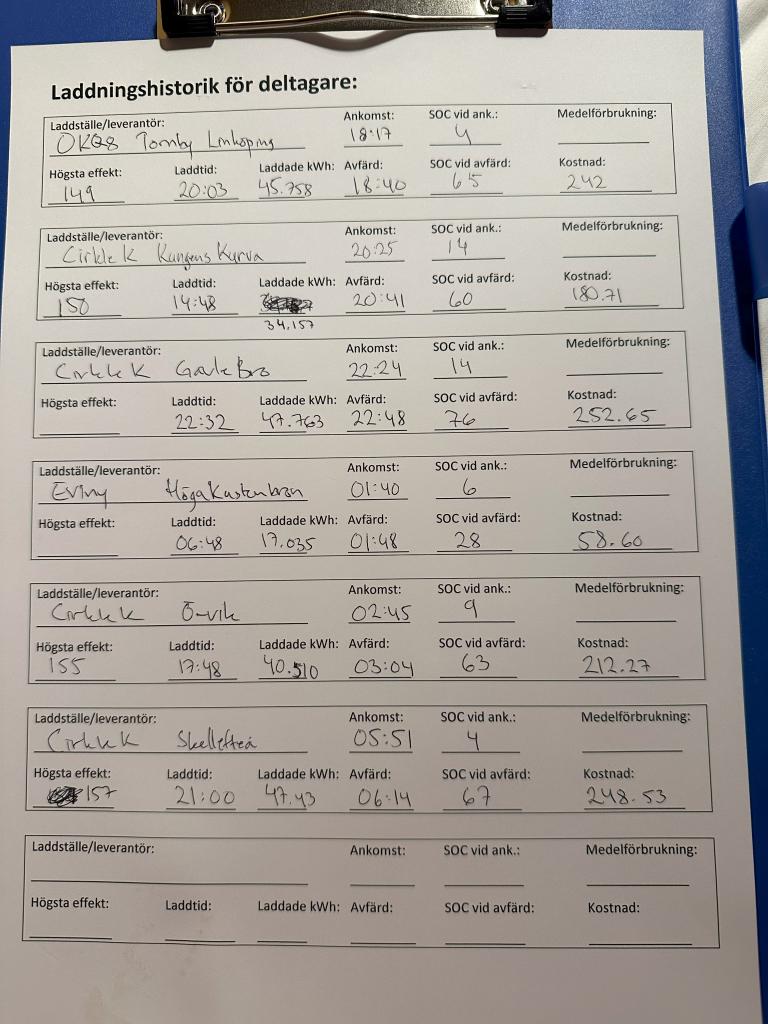 Laddningshistorik för deltagare:
Laddställe/leverantör: Ankomst: SOC vid ank.: Medelförbrukning:
OKQ8 Tornby Linköping 18:17 4
Högsta effekt: Laddtid: Laddade kWh: Avfärd: SOC vid avfärd: Kostnad:
149 20:03 45.758 18:40 65 242
Laddställe/leverantör: Ankomst: SOC vid ank.: Medelförbrukning:
Cirkle K Kungens Kurva 20:25 14
Högsta effekt: Laddtid: Laddade kWh: Avfärd: SOC vid avfärd: Kostnad:
150 14:48 20:41 60 180.71
34.157
Laddställe/leverantör: Ankomst: SOC vid ank.: Medelförbrukning:
Cirkle K Gävle Bro 22:24 14
Högsta effekt: Laddtid: Laddade kWh: Avfärd: SOC vid avfärd: Kostnad:
22:32 47.763 22:48 76 252.65
Laddställe/leverantör: Ankomst: SOC vid ank.: Medelförbrukning:
Eviny Högakustenbron 01:40 6
Högsta effekt: Laddtid: Laddade kWh: Avfärd: SOC vid avfärd: Kostnad:
06:48 17.035 01:48 28 58.60
Laddställe/leverantör: Ankomst: SOC vid ank.: Medelförbrukning:
Cirkle K Ö-vik 02:45 9
Högsta effekt: Laddtid: Laddade kWh: Avfärd: SOC vid avfärd: Kostnad:
155 17:48 40.510 03:04 63 212.27
Laddställe/leverantör: Ankomst: SOC vid ank.: Medelförbrukning:
Cirkle K Skellefteå 05:51 4
Högsta effekt: Laddtid: Laddade kWh: Avfärd: SOC vid avfärd: Kostnad:
157 21:00 47.43 06:14 67 248.53
Laddställe/leverantör: Ankomst: SOC vid ank.: Medelförbrukning:
Högsta effekt: Laddtid: Laddade kWh: Avfärd: SOC vid avfärd: Kostnad: